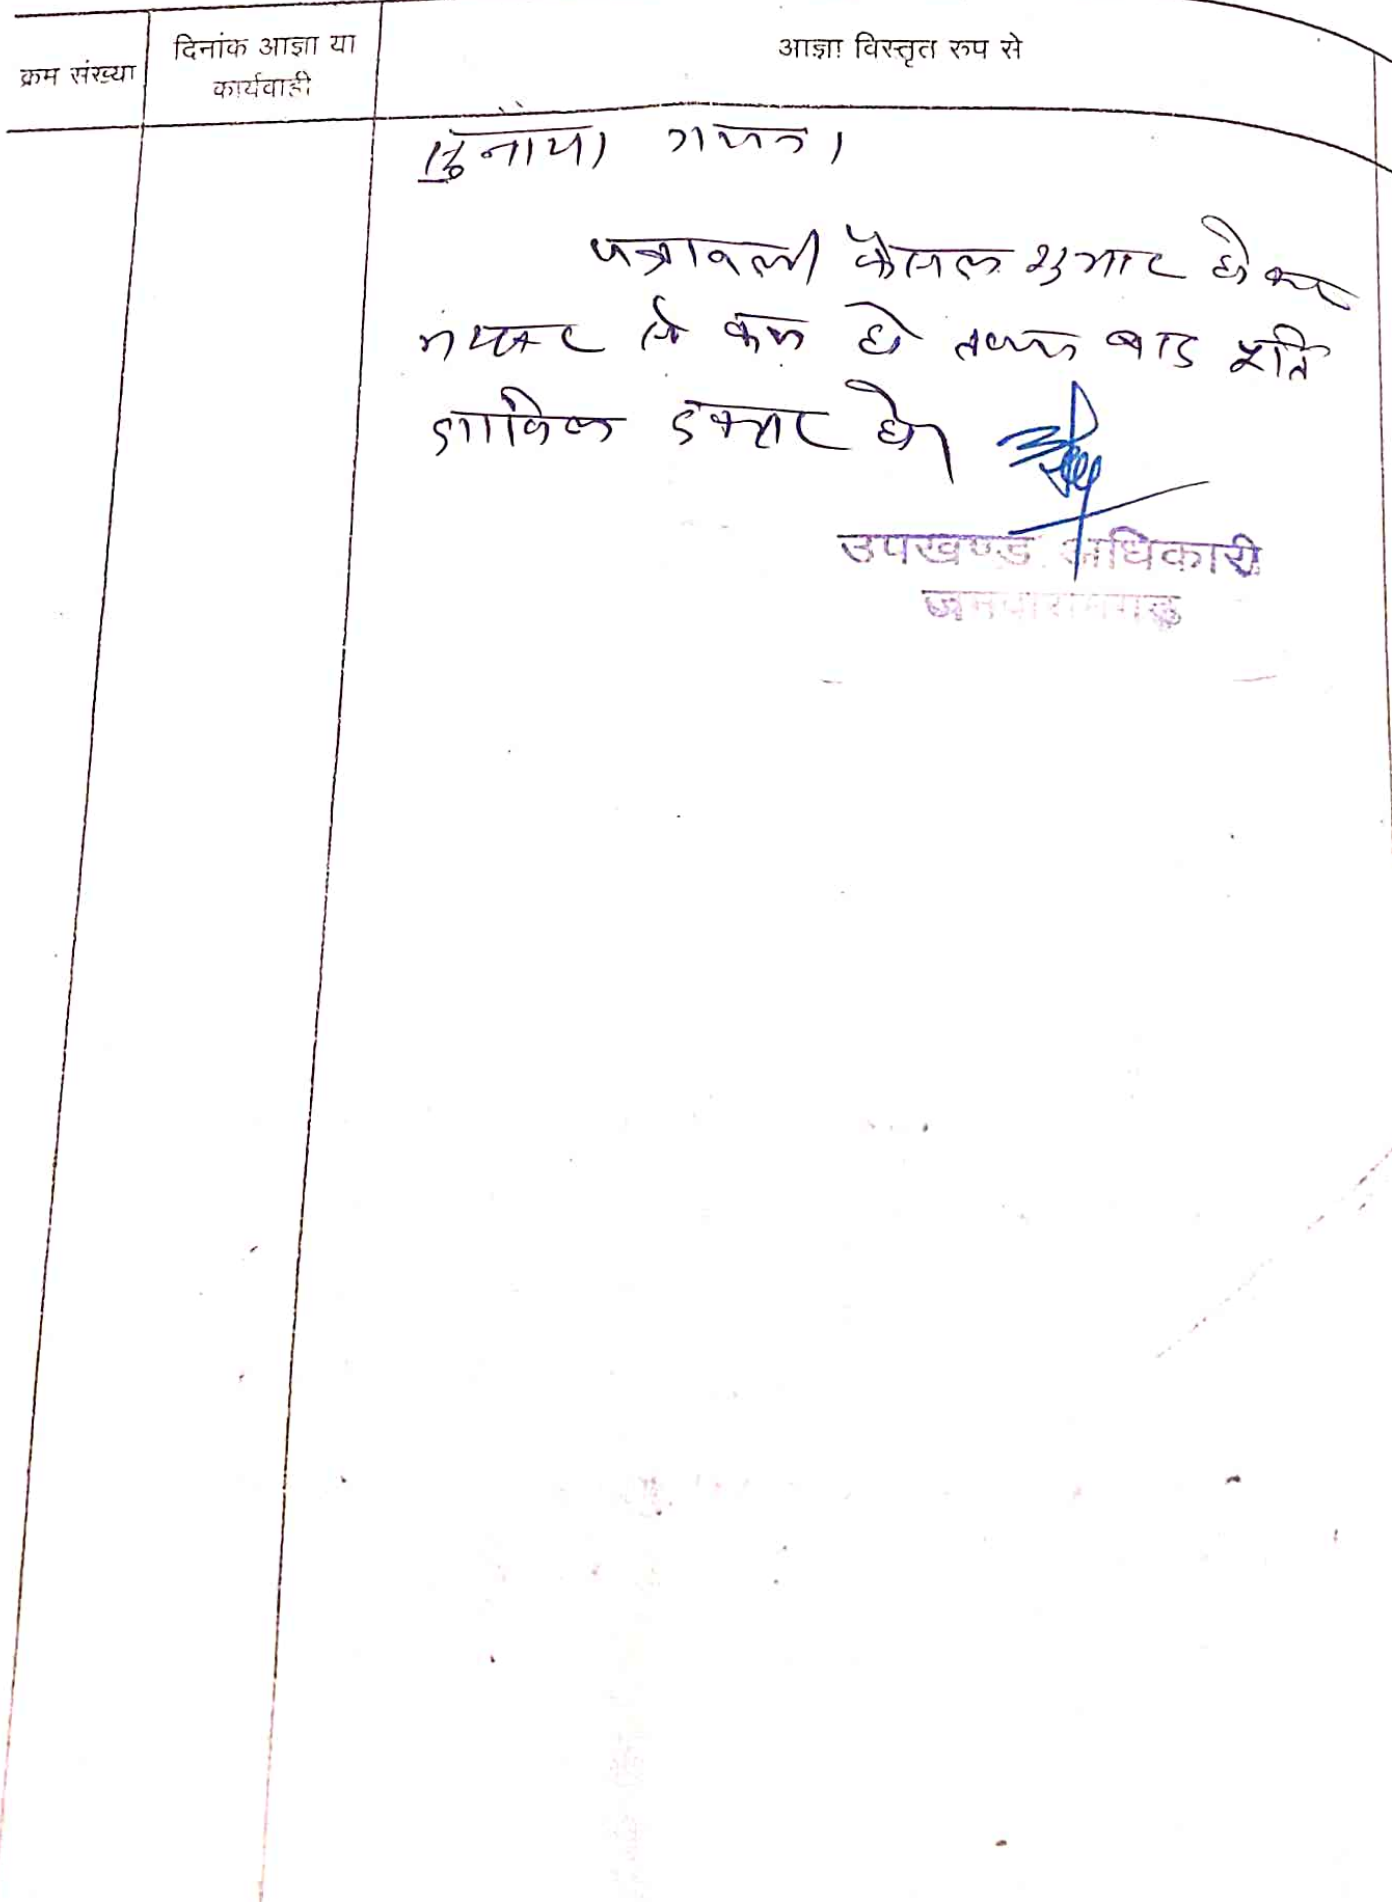 क्रम संख्या
दिनांक आज्ञा या
कार्यवाही
आज्ञा विस्तृत रूप से
सुनाया गया।
पत्रावली फैसल शुमार होकर
नम्बर से कम हो बाद पूर्ति
दाखिल दफ्तर हो।
उपखण्ड अधिकारी
जमवारामगढ़